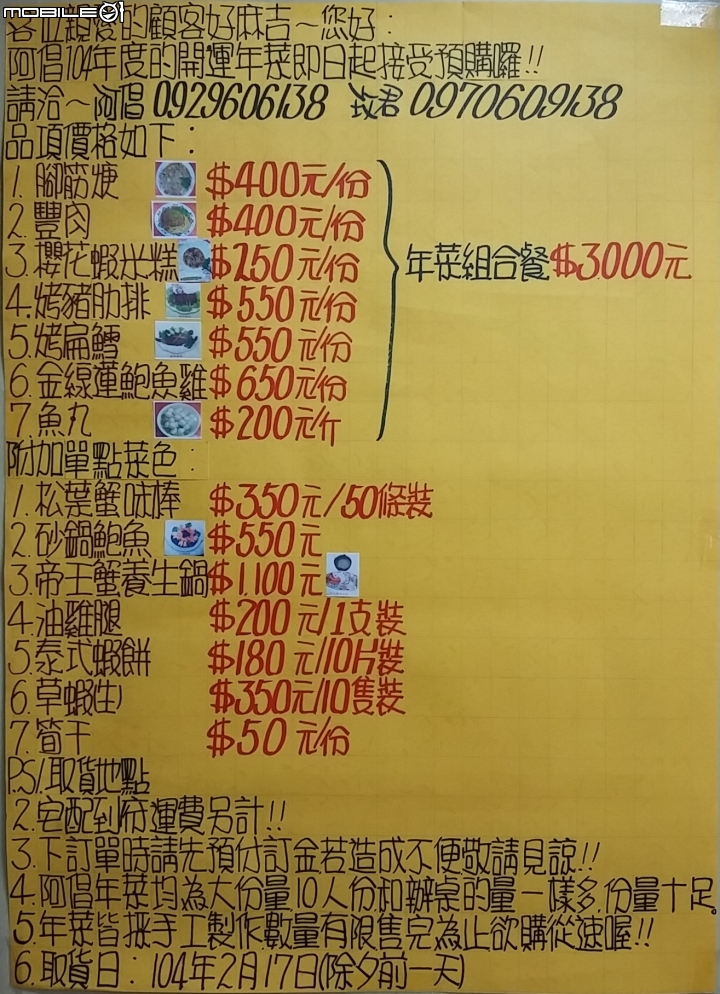 MOBILE01
各位親愛的顧客好麻吉~您好：
阿倡104年度的開運年菜即日起接受預購囉!!
請洽~阿倡 0929606138 玟君 0970609138
品項價格如下：
1. 腳筋焿 $400元/份
2. 豐肉 $400元/份
3. 櫻花蝦米糕 $250元/份
年菜組合餐$3000元
4. 烤豬肋排 $550元/份
5. 烤扁鱈 $550元/份
6. 金線蓮鮑魚雞 $650元/份
7. 魚丸 $200元/斤
附加單點菜色：
1. 松葉蟹味棒 $350元/50條裝
2. 砂鍋鮑魚 $550元
3. 帝王蟹養生鍋 $1,100元
4. 油雞腿 $200元/1支裝
5. 泰式蝦餅 $180元/10片裝
6. 草蝦(生) $350元/10隻裝
7. 筍干 $50元/份
P.S/1.取貨地點
2. 宅配到府運費另計!!
3. 下訂單時請先預付訂金,若造成不便敬請見諒!!
4. 阿倡年菜均為大份量10人份和辦桌的量一樣多,份量十足。
5. 年菜皆採手工製作數量有限售完為止欲購從速喔!!
6. 取貨日：104年2月17日(除夕前一天)